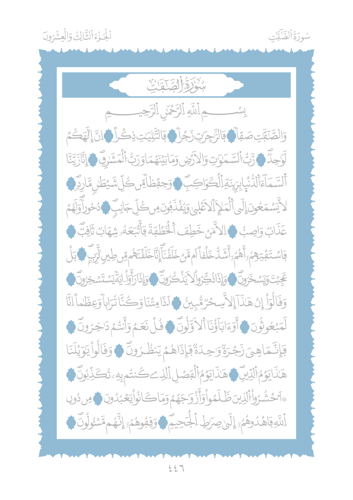 سُورَةُ الصَّافَّاتِ
الجُزْءُ الثَّالِثُ وَالعِشْرُونَ
سُورَةُ الصَّافَّاتِ
بِسْمِ اللَّهِ الرَّحْمَٰنِ الرَّحِيمِ
وَالصَّٰفَّٰتِ صَفًّا فَالزَّٰجِرَٰتِ زَجْرًا فَالتَّٰلِيَٰتِ ذِكْرًا إِنَّ إِلَٰهَكُمْ
لَوَٰحِدٌ رَّبُّ السَّمَٰوَٰتِ وَالْأَرْضِ وَمَا بَيْنَهُمَا وَرَبُّ الْمَشَٰرِقِ إِنَّا زَيَّنَّا
السَّمَاءَ الدُّنْيَا بِزِينَةٍ الْكَوَاكِبِ وَحِفْظًا مِّن كُلِّ شَيْطَٰنٍ مَّارِدٍ
لَّا يَسَّمَّعُونَ إِلَى الْمَلَإِ الْأَعْلَىٰ وَيُقْذَفُونَ مِن كُلِّ جَانِبٍ دُحُورًا وَلَهُمْ
عَذَابٌ وَاصِبٌ إِلَّا مَنْ خَطِفَ الْخَطْفَةَ فَأَتْبَعَهُ شِهَابٌ ثَاقِبٌ
فَاسْتَفْتِهِمْ أَهُمْ أَشَدُّ خَلْقًا أَم مَّنْ خَلَقْنَا إِنَّا خَلَقْنَٰهُم مِّن طِينٍ لَّازِبٍ بَلْ
عَجِبْتَ وَيَسْخَرُونَ وَإِذَا ذُكِّرُوا لَا يَذْكُرُونَ وَإِذَا رَأَوْا ءَايَةً يَسْتَسْخِرُونَ
وَقَالُوا إِنْ هَٰذَا إِلَّا سِحْرٌ مُّبِينٌ أَءِذَا مِتْنَا وَكُنَّا تُرَابًا وَعِظَٰمًا أَءِنَّا
لَمَبْعُوثُونَ أَوَءَابَاؤُنَا الْأَوَّلُونَ قُلْ نَعَمْ وَأَنتُمْ دَٰخِرُونَ
فَإِنَّمَا هِيَ زَجْرَةٌ وَٰحِدَةٌ فَإِذَا هُمْ يَنظُرُونَ وَقَالُوا يَٰوَيْلَنَا
هَٰذَا يَوْمُ الدِّينِ هَٰذَا يَوْمُ الْفَصْلِ الَّذِي كُنتُم بِهِ تُكَذِّبُونَ
۞ احْشُرُوا الَّذِينَ ظَلَمُوا وَأَزْوَٰجَهُمْ وَمَا كَانُوا يَعْبُدُونَ مِن دُونِ
اللَّهِ فَاهْدُوهُمْ إِلَىٰ صِرَٰطِ الْجَحِيمِ وَقِفُوهُمْ إِنَّهُم مَّسْـُٔولُونَ
٤٤٦